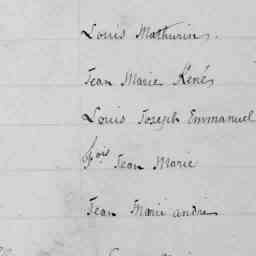 Louis Mathurin.
Jean Marie René
Louis Joseph Emmanuel
fois Jean Marie
Jean Marie andré